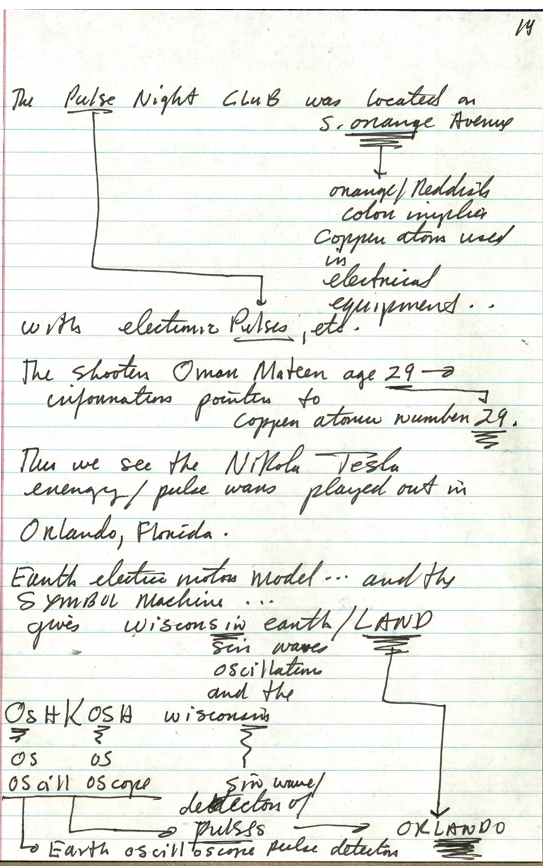 14
The Pulse Night CLUB was located on
S. orange Avenue
orange/Reddish
color implies
copper atom used
in
electrical
equipment...
with electronic Pulses, etc.
The shooter Omar Mateen age 29 →
information pointer to
copper atomic number 29.
Thus we see the Nikola Tesla
energy/pulse wars played out in
Orlando, Florida.
Earth electric motors model... and the
SYMBOL Machine...
gives wisconsin earth/LAND
sin waves
oscillation
and the
OSHKOSH wisconsin
OS OS
oscill oscope sin wave/
detectors of
pulses → ORLANDO
→ Earth oscilloscope pulse detectors